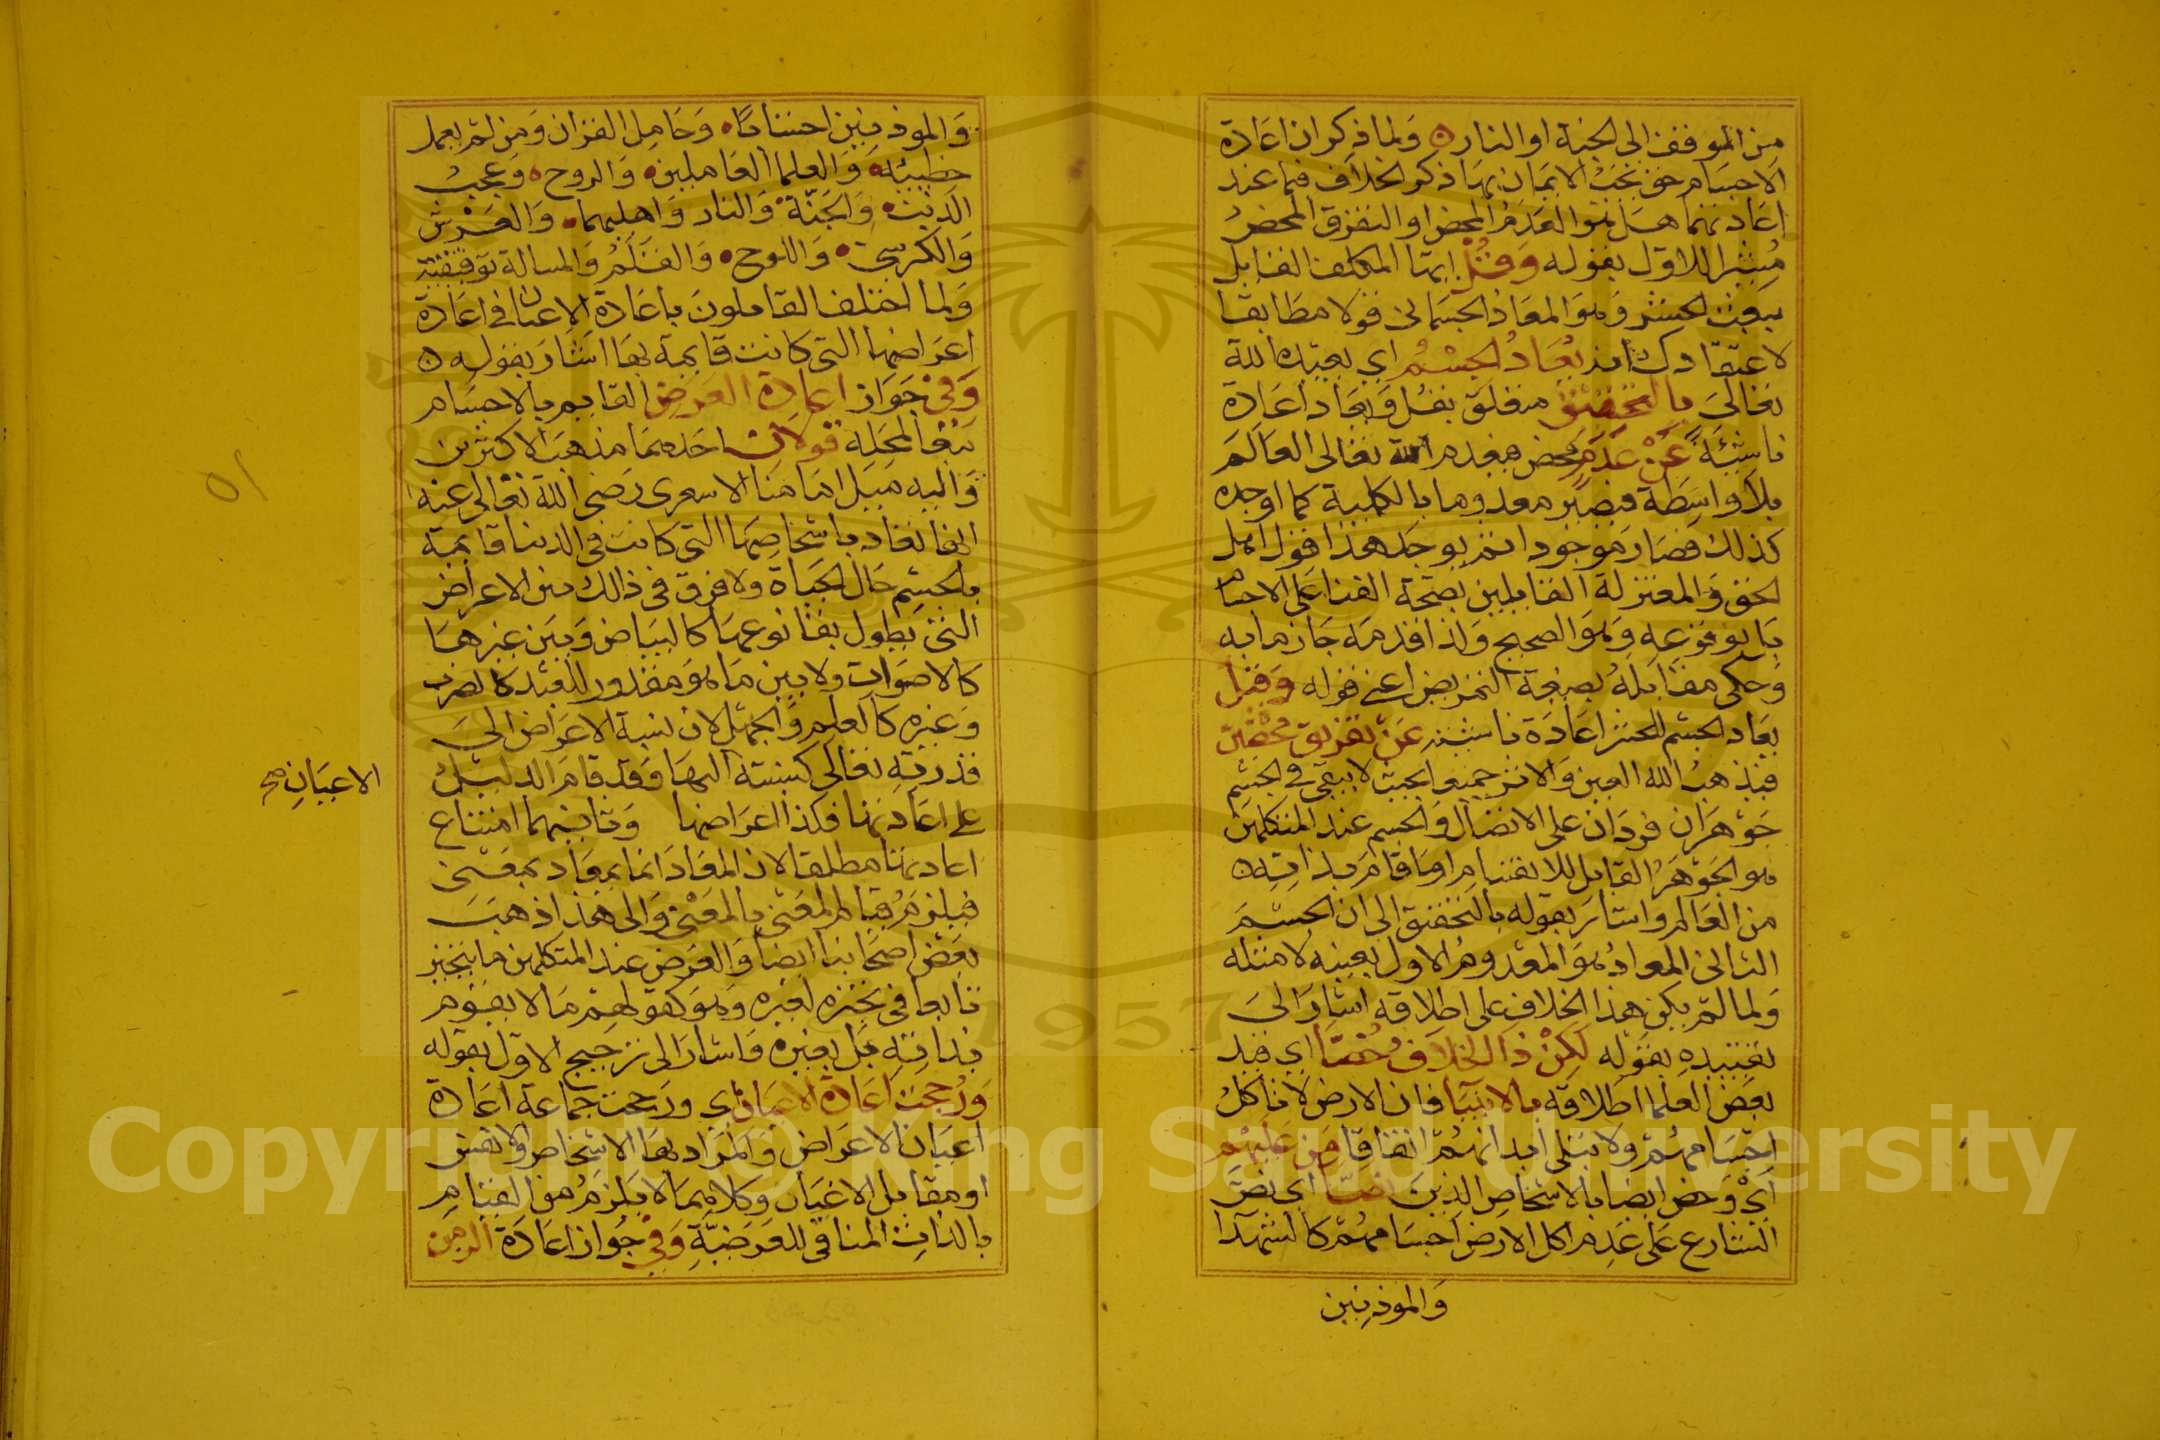 من الموقف الى الجنة او النار ه ولما ذكر ان اعادة
الاجسام حق يجب الايمان بها ذكر الخلاف فيما عند
اعادتها هل هو العدم المحض او التفرق المحض
مشيرا للاول بقوله وقل ايها المكلف القايل
ببعث الحشر وهو المعاد الجسماني قولا مطابقا
لاعتقادك انه يعاد الجسم اي يعيده الله
تعالى بالتحقيق متعلق بقل ويعاد اعادة
ناشئة عن عدم محض فيعدم الله تعالى العالم
بلا واسطة فيصير معدوما بالكلية كما اوجده
كذلك فصار موجودا ثم يوجد هذا قول اهل
الحق والمعتزلة القايلين بصحة الفنا على الاجسام
بل بوقوعه وهو الصحيح ولذا قدمه جازما به
وحكى مقابله بصيغة التمريض اعني قوله وقيل
يعاد الجسم للحشر اعادة ناشئة عن تفريق محضين
فيذهب الله العين والاثر جميعا بحيث لا يبقى في الجسم
جوهران فردان على الاتصال والجسم عند المتكلمين
هو الجوهر القابل للانقسام او ما قام بذاته ه
من العالم واشار بقوله بالتحقيق الى ان الجسم
الثاني المعاد هو المعدوم الاول بعينه لا مثله
ولما لم يكن هذا الخلاف على اطلاقه اشار الى
تقييده بقوله لكن ذا الخلاف خصا اي قيد
بعض العلما اطلاقه بالانبيا فان الارض لا تاكل
اجسامهم ولا تبلى ابدانهم اتفاقا ومن عليهم
اي وخص ايضا بالاشخاص الذين نصا اي نص
الشارع على عدم اكل الارض اجسامهم كالشهدا
والموذنين
والموذنين احتسابا وحامل القران ومن لم يعمل
خطيئة والعلما العاملين والروح وعجب
الذنب والجنة والنار واهليهما والعرش
والكرسي واللوح والقلم والمسالة توقيفية
ولما اختلف القايلون باعادة الاعيان في اعادة
اعراضها التي كانت قايمة بها اشار بقوله ه
وفي جواز اعادة العرض القايم بالاجسام
تبعا لمحله قولان احدهما مذهب الاكثرين
واليه ميل امامنا الاشعري رضي الله تعالى عنه
انها تعاد باشخاصها التي كانت في الدنيا قايمة
بالجسم حال الحياة ولا فرق في ذلك بين الاعراض
التي يطول بقا نوعها كالبياض وبين غيرها
كالاصوات ولا بين ما هو مقدور للعبد كالضرب
وغيره كالعلم والجهل لان نسبة الاعراض الى
قدرته تعالى كنسبة اليها وقد قام الدليل
الاعيان صح
على اعادتها فكذا اعراضها وثانيهما امتناع
اعادتها مطلقا لان المعاد انما يعاد بمعنى
فيلزم قيام المعنى بالمعنى والى هذا ذهب
بعض اصحابنا ايضا والعرض عند المتكلمين ما يتحيز
تابعا في تحيزه لغيره وهو كقولهم ما لا يقوم
بذاته بل بغيره واشار الى ترجيح الاول بقوله
ورجحت اعادة الاعيان اي ورجحت جماعة اعادة
اعيان الاعراض والمراد بها الاشخاص والانفس
او مقابل الاعيان وكلاهما لا يلزم من القيام
بالذات المنافي للعرضية وفي جواز اعادة الزمن